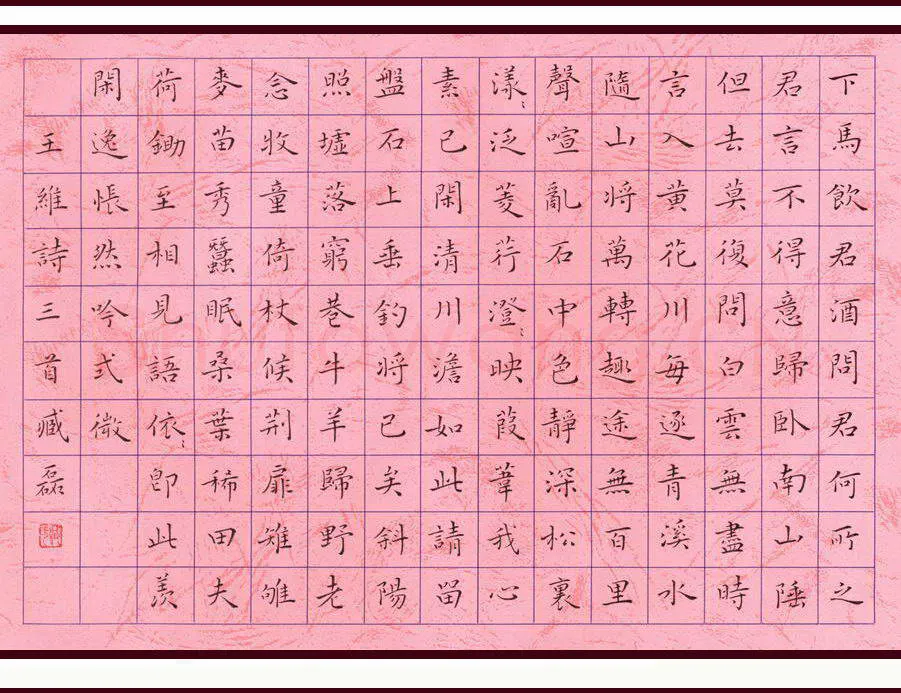 下馬飲君酒問君何所之
君言不得意歸臥南山陲
但去莫復問白雲無盡時
言入黃花川每逐青溪水
隨山將萬轉趣途無百里
聲喧亂石中色靜深松裏
漾〻泛菱荇澄〻映葭葦我心
素已閑清川澹如此請留
盤石上垂釣將已矣斜陽
照墟落窮巷牛羊歸野老
念牧童倚杖候荊扉雉雊
麥苗秀蠶眠桑葉稀田夫
荷鋤至相見語依〻即此羨
閑逸悵然吟式微
王維詩三首臧磊